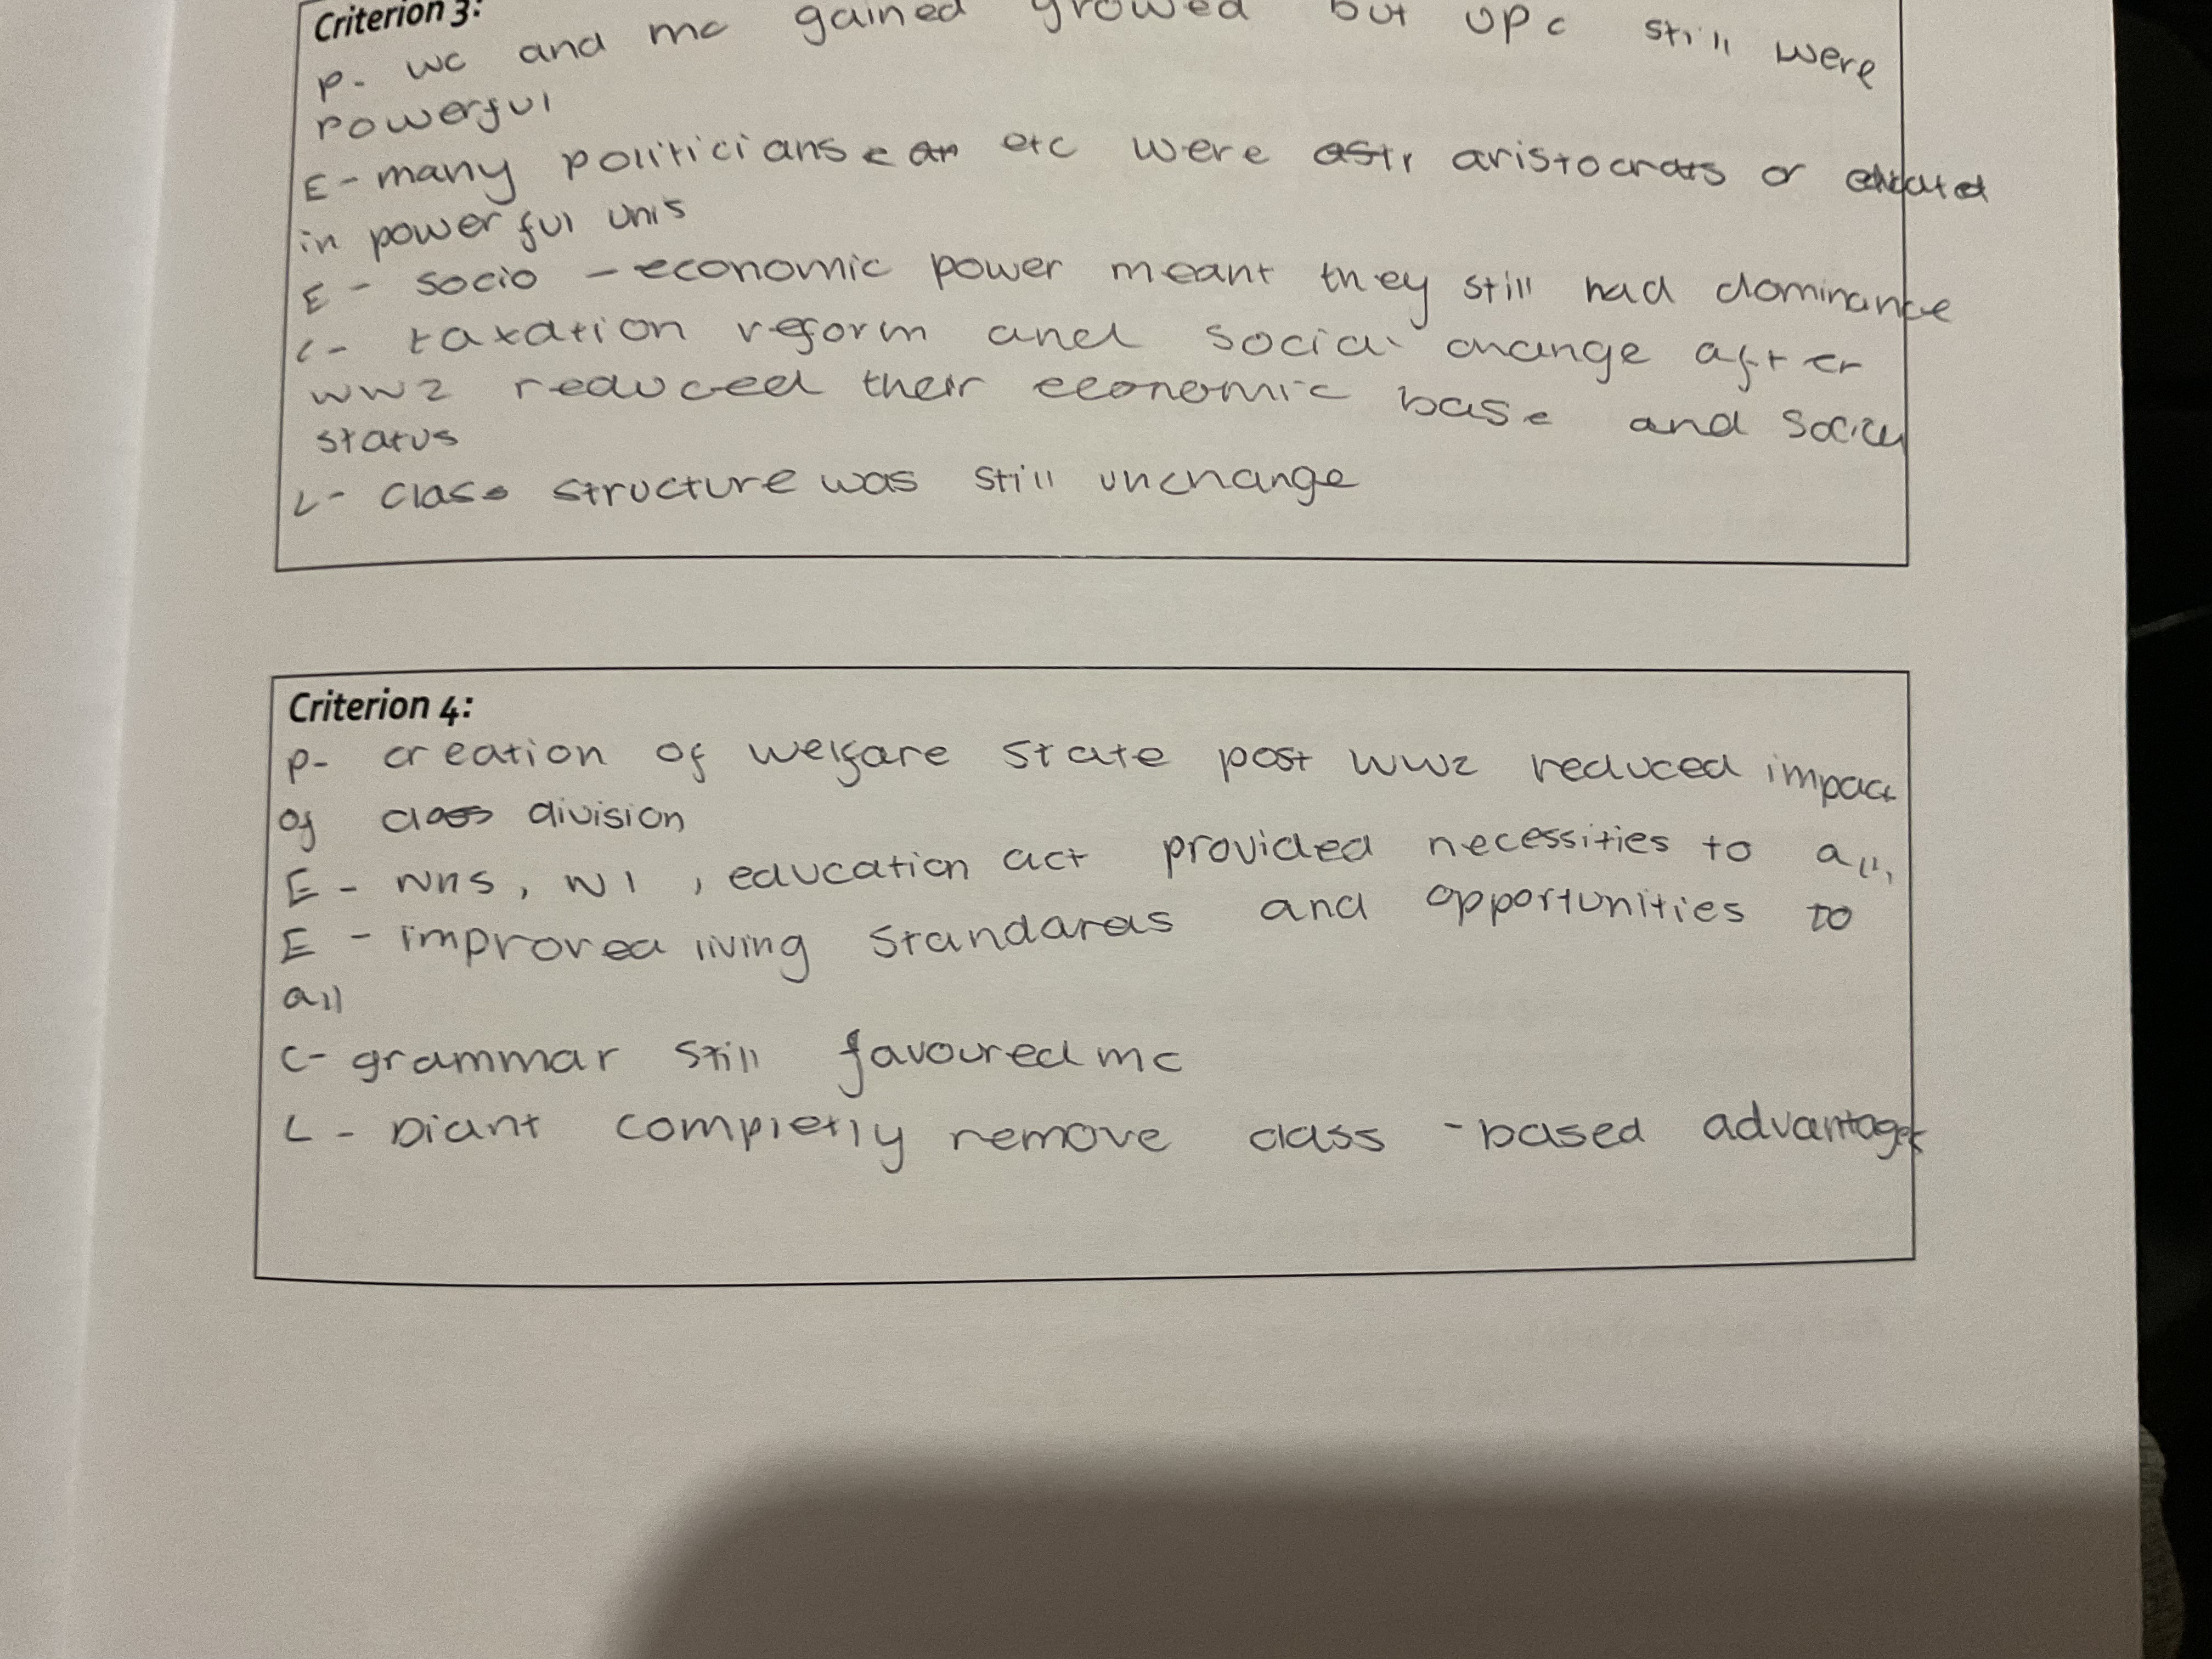 Criterion 3:
P- wc and mc gained growed but upc still were
powerful
E- many politicians etc were aristocrats or educated
in powerful unis
E- socio-economic power meant they still had dominance
C- taxation reform and social change after
ww2 reduced their economic base and social
status
L- class structure was still unchange
Criterion 4:
P- creation of welfare state post ww2 reduced impact
of class division
E- NHS, NI, education act provided necessities to all,
E- improved living standards and opportunities to
all
C- grammar still favoured mc
L- Diant completly remove class-based advantages